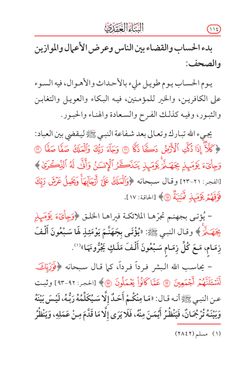 البناء العقدي
١١٤
بدء الحساب والقضاء بين الناس وعرض الأعمال والموازين
والصحف:
يوم الحساب يوم طويل مليء بالأحداث والأهوال، فيه السوء
على الكافرين، والخير للمؤمنين، فيه البكاء والعويل والتغابن
والثبور، وفيه كذلك الفرح والسعادة والهناء والحبور.
يجيء الله تبارك وتعالى بعد شفاعة النبي ﷺ ليقضي بين العباد:
﴿كَلَّا إِذَا دُكَّتِ الْأَرْضُ دَكًّا دَكًّا ۝ وَجَاءَ رَبُّكَ وَالْمَلَكُ صَفًّا صَفًّا ۝
وَجِيءَ يَوْمَئِذٍ بِجَهَنَّمَ يَوْمَئِذٍ يَتَذَكَّرُ الْإِنسَانُ وَأَنَّى لَهُ الذِّكْرَى﴾
[الفجر: ٢١-٢٣] وقال سبحانه ﴿وَالْمَلَكُ عَلَى أَرْجَائِهَا وَيَحْمِلُ عَرْشَ رَبِّكَ
فَوْقَهُمْ يَوْمَئِذٍ ثَمَانِيَةٌ ۝﴾ [الحاقة: ١٧].
- يُؤتى بجهنم تجرّها الملائكة قِراها الخلق ﴿وَجِيءَ يَوْمَئِذٍ
بِجَهَنَّمَ﴾ وقال النبي ﷺ: «يُؤْتَى بِجَهَنَّمَ يَوْمَئِذٍ لَهَا سَبْعُونَ أَلْفَ
زِمَامٍ، مَعَ كُلِّ زِمَامٍ سَبْعُونَ أَلْفَ مَلَكٍ يَجُرُّونَهَا»(١).
- يحاسب الله البشر فرداً فرداً، كما قال سبحانه ﴿فَوَرَبِّكَ
لَنَسْأَلَنَّهُمْ أَجْمَعِينَ ۝ عَمَّا كَانُوا يَعْمَلُونَ ۝﴾ [الحجر: ٩٢-٩٣] وثبت
عن النبي ﷺ أنه قال: «مَا مِنْكُمْ أَحَدٌ إِلَّا سَيُكَلِّمُهُ رَبُّهُ، لَيْسَ بَيْنَهُ
وَبَيْنَهُ تُرْجُمَانٌ، فَيَنْظُرُ أَيْمَنَ مِنْهُ، فَلَا يَرَى إِلَّا مَا قَدَّمَ مِنْ عَمَلِهِ، وَيَنْظُرُ
(١) مسلم (٢٨٤٢)